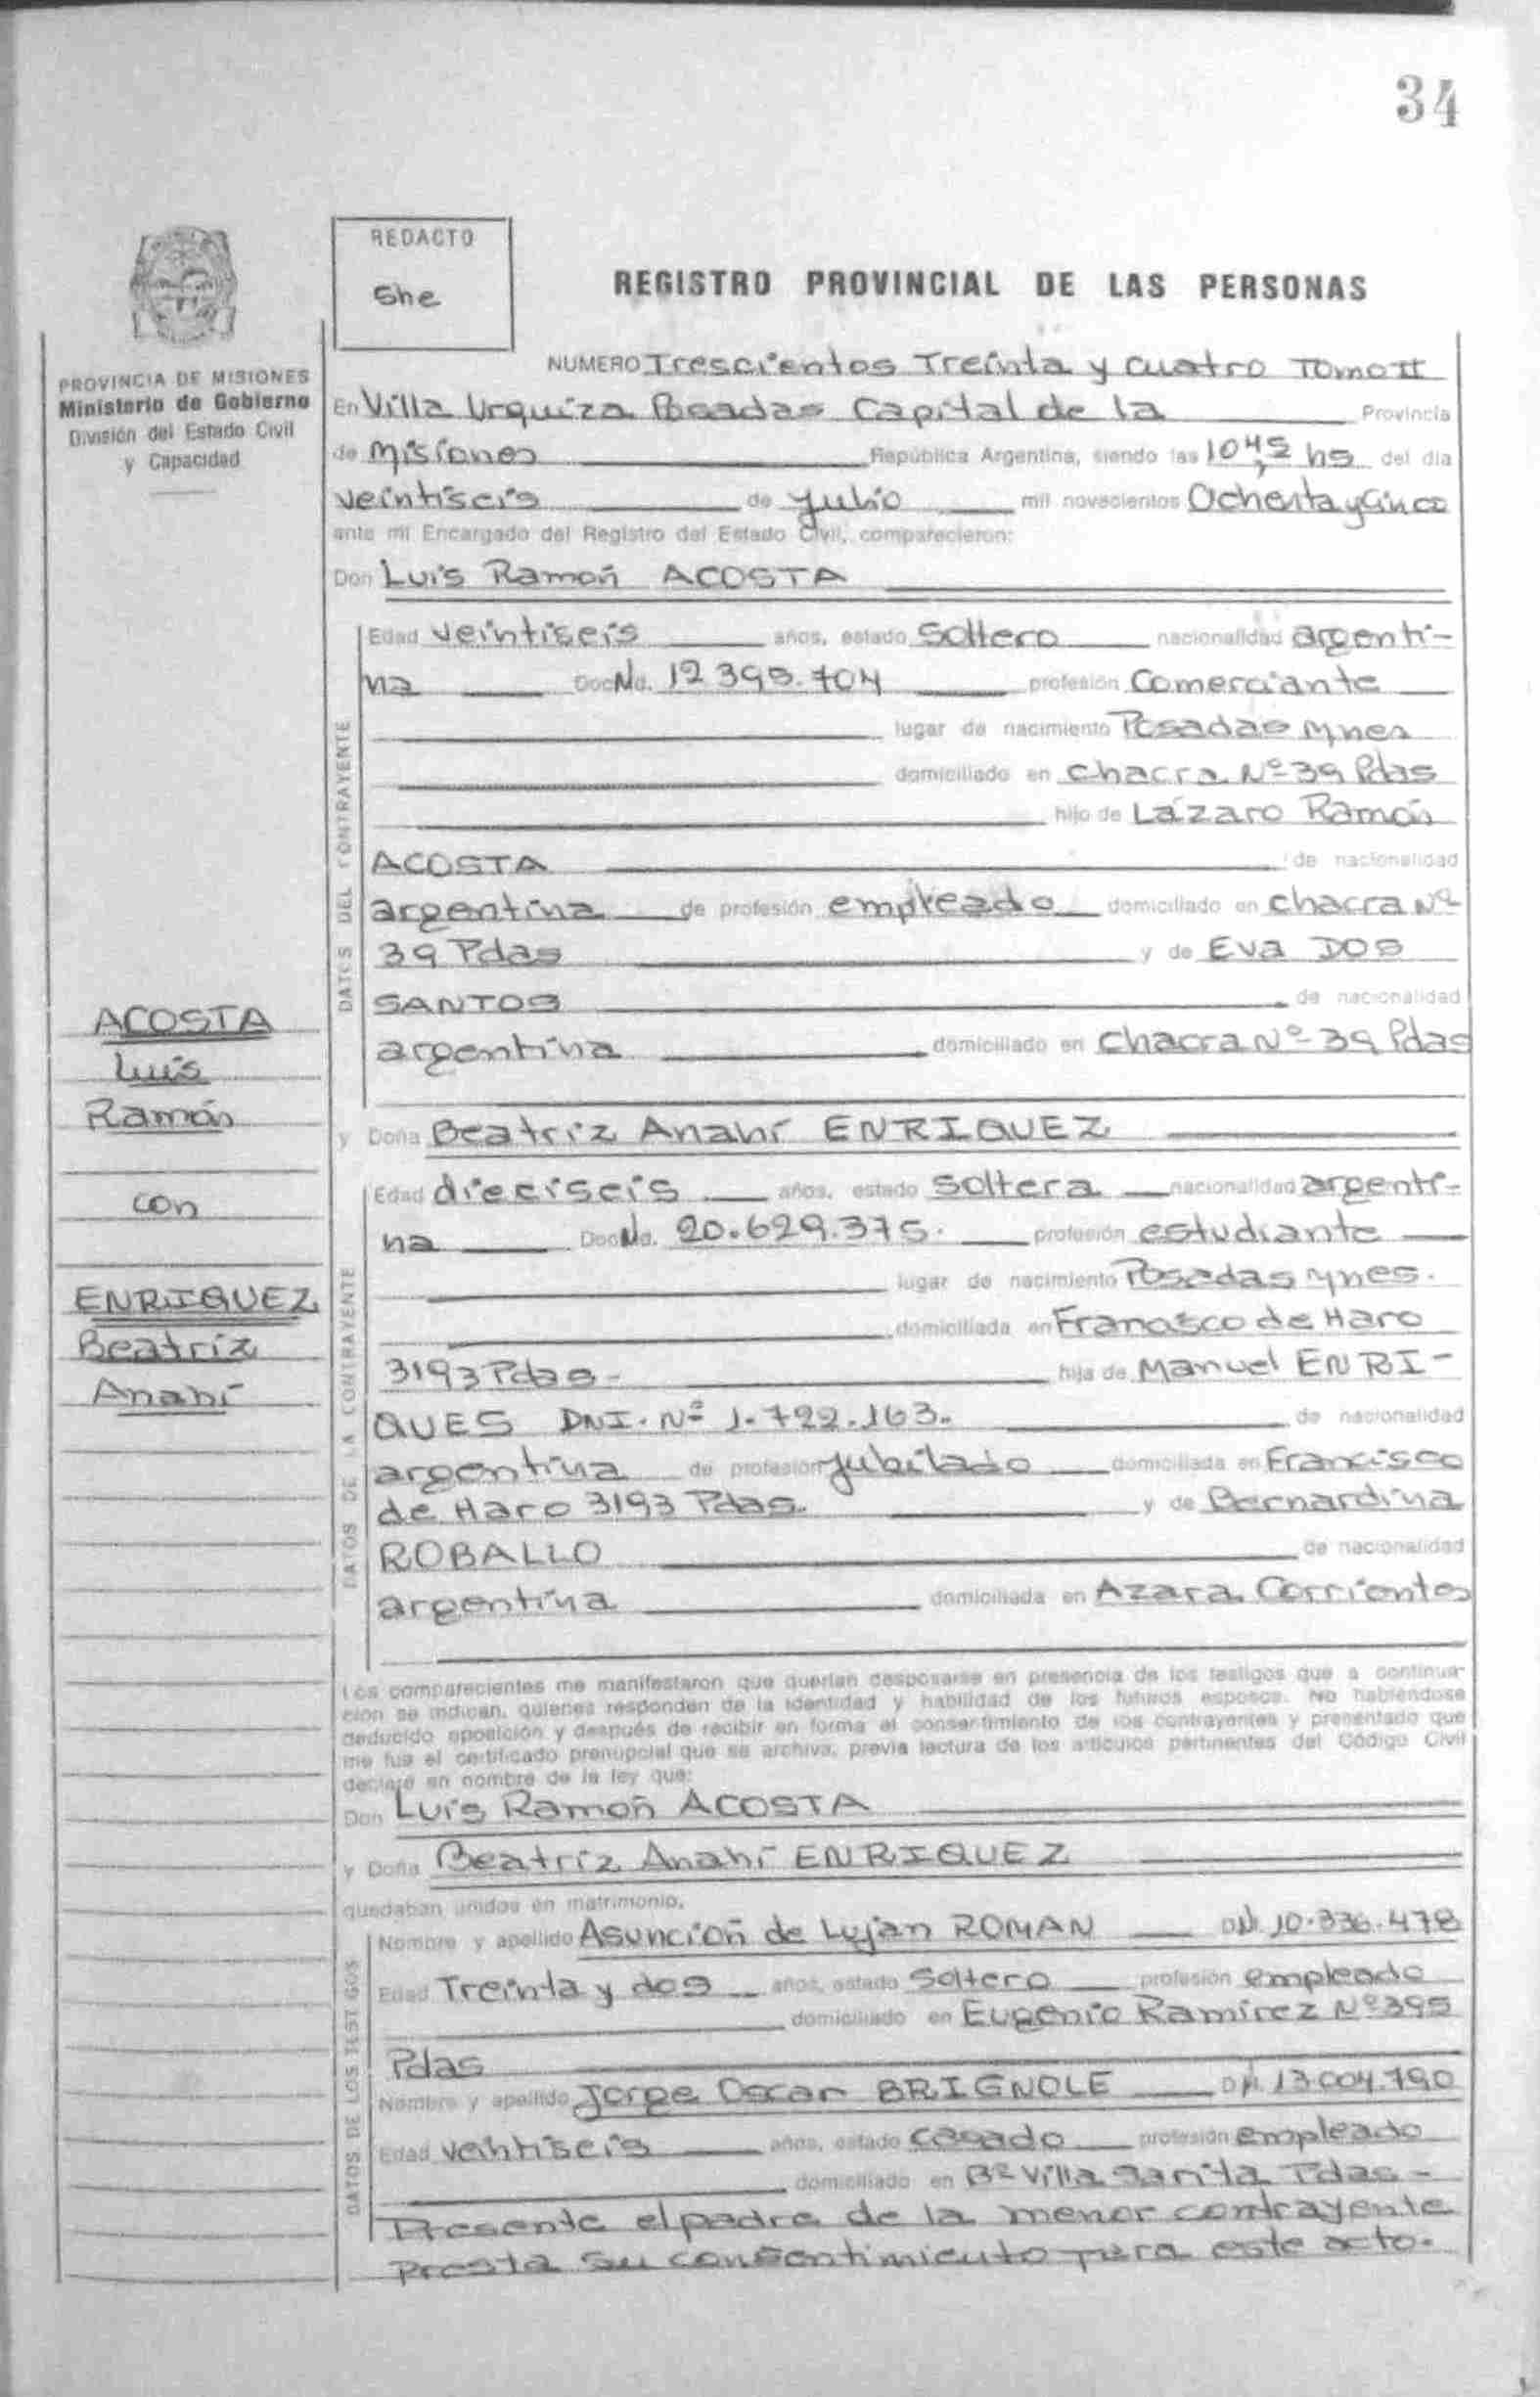 34
REDACTO
She
REGISTRO PROVINCIAL DE LAS PERSONAS
PROVINCIA DE MISIONES
Ministerio de Gobierno
División del Estado Civil
y Capacidad
NUMERO Trescientos Treinta y cuatro Tomo II
En Villa Urquiza Posadas Capital de la Provincia
de Misiones República Argentina, siendo las 10,45 hs del día
veintiseis de Julio mil novecientos Ochenta y Cinco
ante mi Encargado del Registro del Estado Civil, comparecieron:
Don Luis Ramón ACOSTA
DATOS DEL CONTRAYENTE
Edad veintiseis años, estado Soltero nacionalidad argenti-
na Doc No. 12 395.704 profesión Comerciante
lugar de nacimiento Posadas Mnes
domiciliado en chacra Nº 39 Pdas
hijo de Lázaro Ramón
ACOSTA de nacionalidad
argentina de profesión empleado domiciliado en chacra Nº
39 Pdas y de Eva DOS
SANTOS de nacionalidad
argentina domiciliado en Chacra Nº 39 Pdas
ACOSTA
Luis
Ramón
con
ENRIQUEZ
Beatriz
Anahí
y Doña Beatriz Anahí ENRIQUEZ
DATOS DE LA CONTRAYENTE
Edad dieciseis años, estado Soltera nacionalidad argenti-
na Doc No. 20.629.375. profesión estudiante
lugar de nacimiento Posadas Mnes.
domiciliada en Francisco de Haro
3193 Pdas- hija de Manuel ENRI-
QUES DNI. Nº 1.722.163. de nacionalidad
argentina de profesión Jubilado domiciliada en Francisco
de Haro 3193 Pdas. y de Bernardina
ROBALLO de nacionalidad
argentina domiciliada en Azara Corrientes
Los comparecientes me manifestaron que querían desposarse en presencia de los testigos que a continua-
ción se indican, quienes responden de la identidad y habilidad de los futuros esposos. No habiéndose
deducido oposición y después de recibir en forma el consentimiento de los contrayentes y presentado que
me fue el certificado prenupcial que se archiva, previa lectura de los artículos pertinentes del Código Civil
declaré en nombre de la ley que:
Don Luis Ramón ACOSTA
y Doña Beatriz Anahí ENRIQUEZ
quedaban unidos en matrimonio.
DATOS DE LOS TESTIGOS
Nombre y apellido Asunción de Luján ROMAN DNI 10.336.478
Edad Treinta y dos años, estado Soltero profesión empleado
domiciliado en Eugenio Ramírez Nº 395
Pdas
Nombre y apellido Jorge Oscar BRIGNOLE DNI 13.004.790
Edad veintiseis años, estado casado profesión empleado
domiciliado en Bº Villa Sarita Pdas-
Presente el padre de la menor contrayente
Presta su consentimiento para este acto.